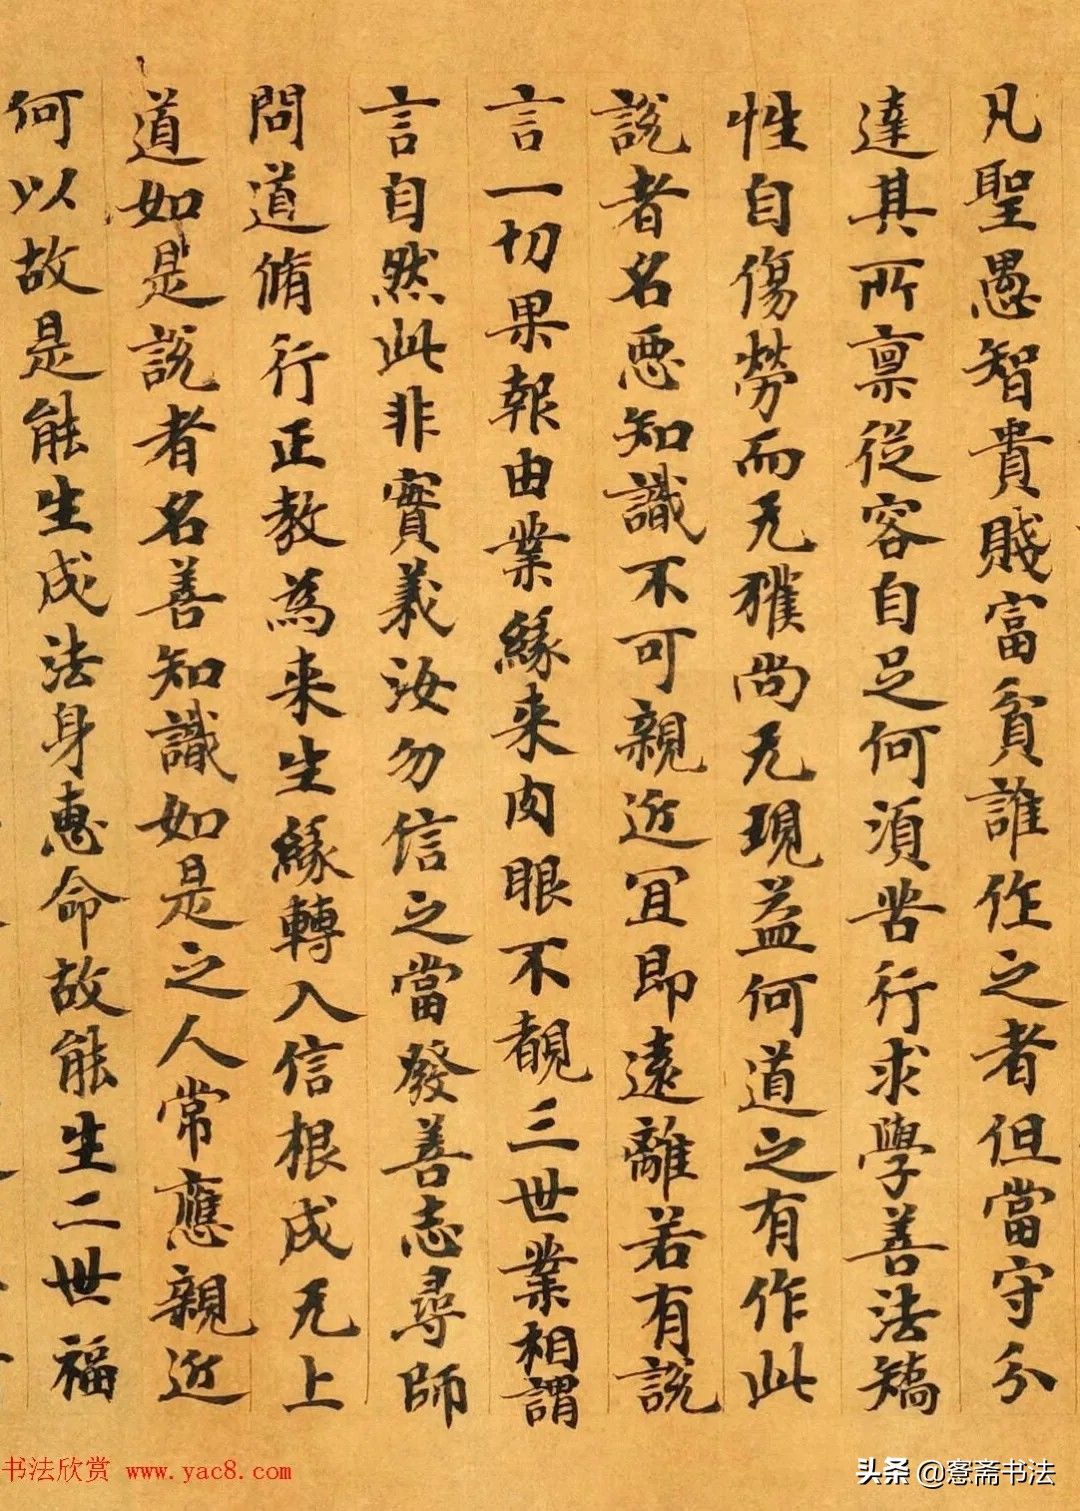 凡聖愚智貴賤富貧誰作之者但當守分
達其所禀從容自足何須苦行求學善法矯
性自傷勞而无獲尚无現益何道之有作此
說者名惡知識不可親近宜即遠離若有說
言一切果報由業緣来肉眼不覩三世業相謂
言自然此非實義汝勿信之當發善志尋師
問道脩行正教為来生緣轉入信根成无上
道如是說者名善知識如是之人常應親近
何以故是能生成法身惠命故能生二世福
书法欣赏 www.yac8.com
头条 @窓斋书法